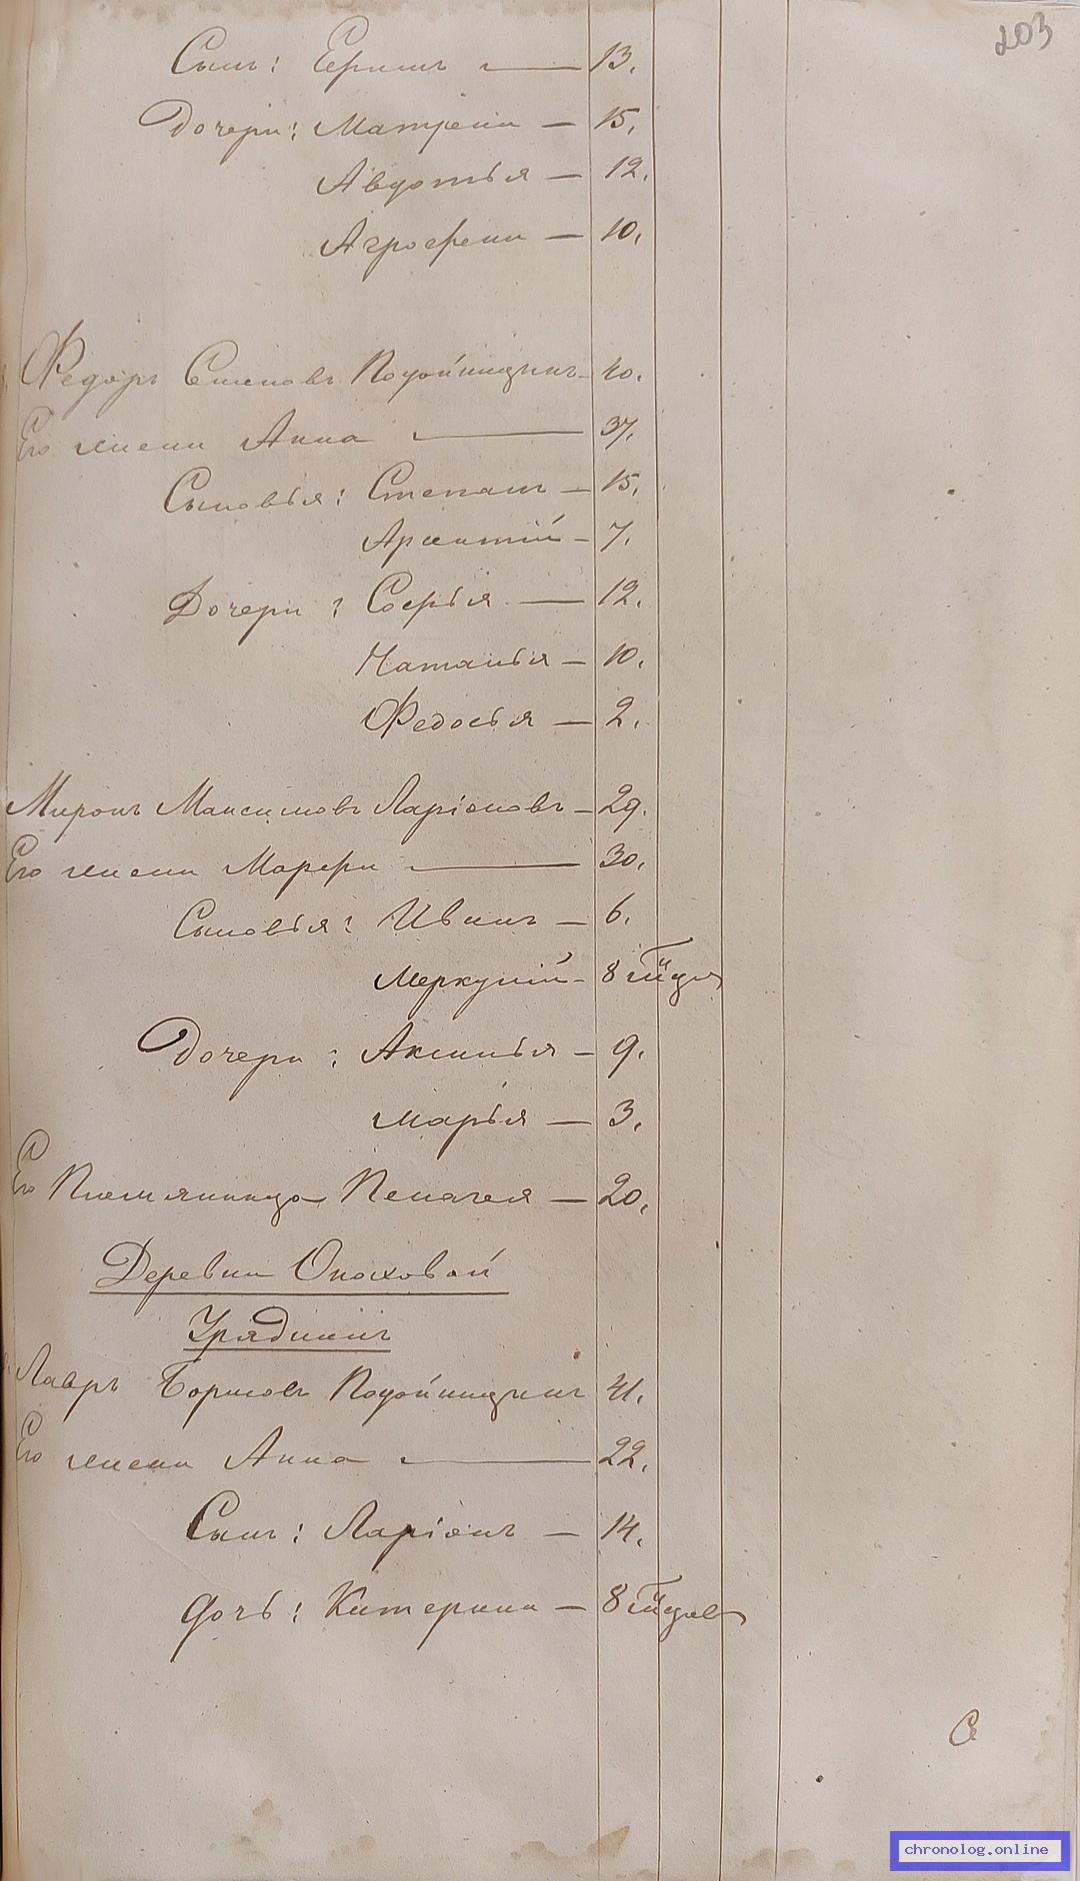 203
Сынъ: Ефимъ — 13.
Дочери: Матрена — 15.
Авдотья — 12.
Агрофена — 10.
Федоръ Степановъ Подойницынъ — 40.
Его жена Анна — 37.
Сыновья: Степанъ — 15.
Арсентій — 7.
Дочери: Софья — 12.
Наталья — 10.
Федосья — 2.
Миронъ Максимовъ Ларіоновъ — 29.
Его жена Марфа — 30.
Сыновья: Иванъ — 6.
Меркурій — 8
Дочери: Аксинья — 9.
Марья — 3.
Его Племянница Пелагея — 20.
Деревни
Урядникъ
Лавръ Борисовъ Подойницынъ 41.
Его жена Анна — 22.
Сынъ: Ларіонъ — 14.
дочь: Катерина — 8
chronolog.online